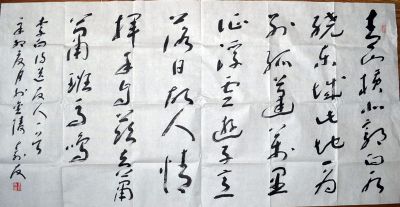 青山橫北郭白水
繞東城此地一為
別孤蓬萬里
征浮雲遊子意
落日故人情
揮手自茲去蕭
蕭班馬鳴
李白詩送友人一首
辛卯夏月於金陵